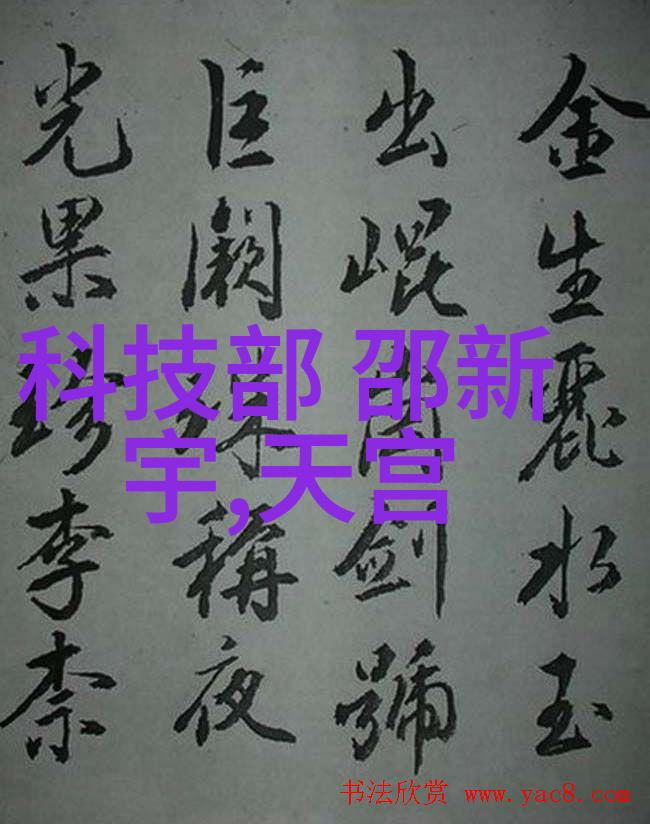 金生麗水玉
出崐岡劍號
巨闕珠稱夜
光果珍李柰
科技部 邵新
宇,天宫
书法欣赏 www.yac8.com